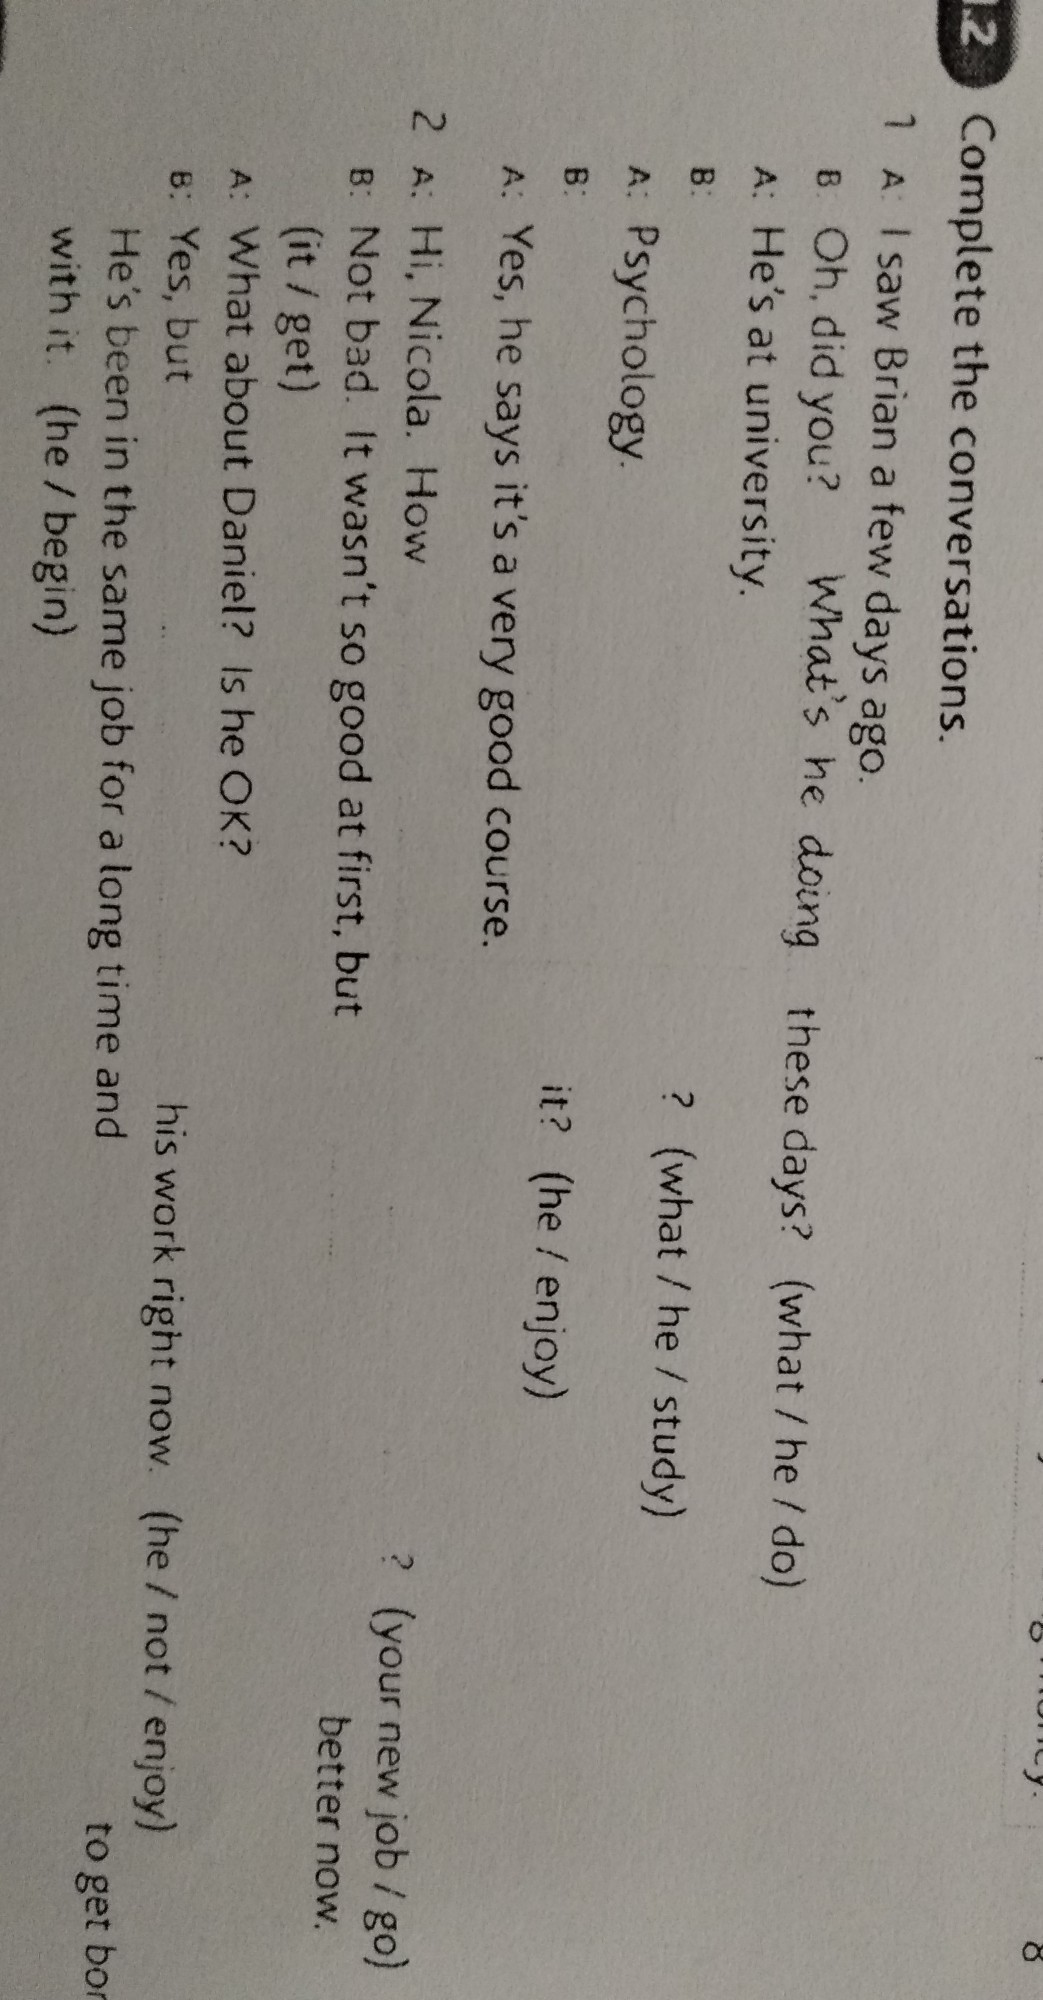 .2 Complete the conversations.
1 A: I saw Brian a few days ago.
B: Oh, did you? What's he doing these days? (what / he / do)
A: He's at university.
B: ? (what / he / study)
A: Psychology.
B: it? (he / enjoy)
A: Yes, he says it's a very good course.
2 A: Hi, Nicola. How ? (your new job / go)
B: Not bad. It wasn't so good at first, but better now.
(it / get)
A: What about Daniel? Is he OK?
B: Yes, but his work right now. (he / not / enjoy)
He's been in the same job for a long time and to get bor
with it. (he / begin)